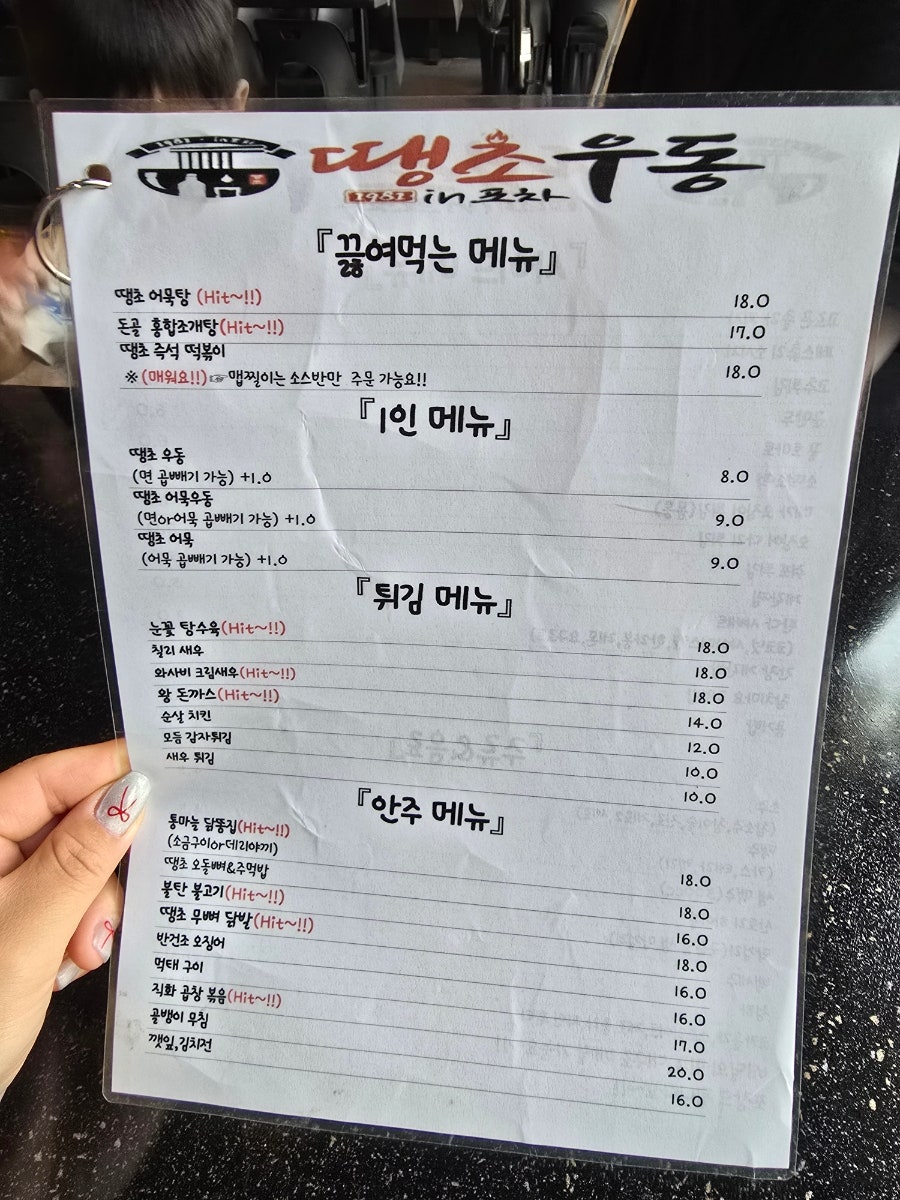 1981 in 포차
땡초우동
1981 in 포차
『끓여먹는 메뉴』
땡초 어묵탕 (Hit~!!) 18.0
돈골 홍합조개탕(Hit~!!) 17.0
땡초 즉석 떡볶이 18.0
※(매워요!!)☞맵찔이는 소스반만 주문 가능요!!
『1인 메뉴』
땡초 우동
(면 곱빼기 가능) +1.0 8.0
땡초 어묵우동
(면or어묵 곱빼기 가능) +1.0 9.0
땡초 어묵
(어묵 곱빼기 가능) +1.0 9.0
『튀김 메뉴』
눈꽃 탕수육(Hit~!!) 18.0
칠리 새우 18.0
와사비 크림새우(Hit~!!) 18.0
왕 돈까스(Hit~!!) 14.0
순살 치킨 12.0
모듬 감자튀김 10.0
새우 튀김 10.0
『안주 메뉴』
통마늘 닭똥집(Hit~!!)
(소금구이or데리야끼) 18.0
땡초 오돌뼈&주먹밥 18.0
불탄 불고기(Hit~!!) 16.0
땡초 무뼈 닭발(Hit~!!) 18.0
반건조 오징어 16.0
먹태 구이 16.0
직화 곱창 볶음(Hit~!!) 17.0
골뱅이 무침 20.0
깻잎,김치전 16.0